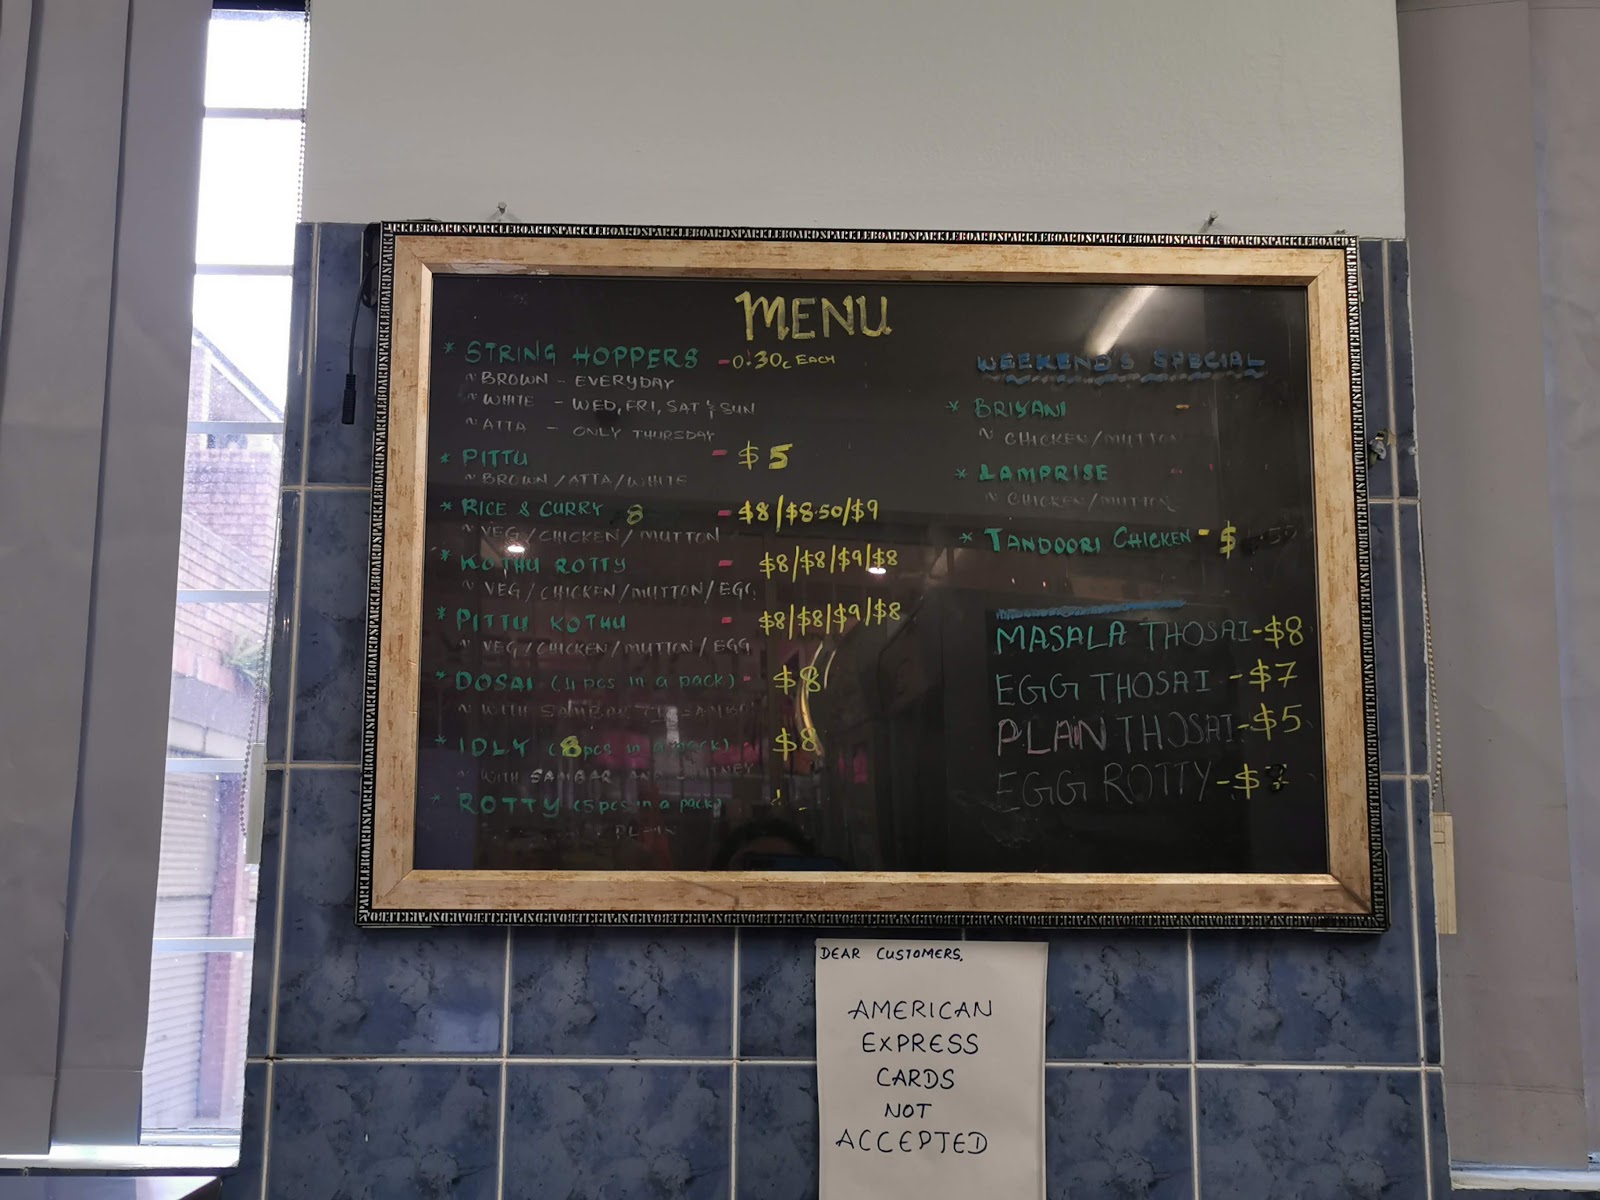 MENU
* STRING HOPPERS - 0.30c EACH
~ BROWN - EVERYDAY
~ WHITE - WED, FRI, SAT & SUN
~ ATTA - ONLY THURSDAY
* PITTU - $5
~ BROWN / ATTA / WHITE
* RICE & CURRY 8 - $8/$8.50/$9
~ VEG / CHICKEN / MUTTON
* KOTHU ROTTY - $8/$8/$9/$8
~ VEG / CHICKEN / MUTTON / EGG
* PITTU KOTHU - $8/$8/$9/$8
~ VEG / CHICKEN / MUTTON / EGG
* DOSAI (4 pcs in a pack) - $8/
~ WITH SAMBAR
* IDLY (8pcs in a pack) $8
~ WITH SAMBAR AND
* ROTTY (5 pcs in a pack)
WEEKEND'S SPECIAL
* BRIYANI -
~ CHICKEN / MUTTON
* LAMPRISE -
~ CHICKEN / MUTTON
* TANDOORI CHICKEN - $
MASALA THOSAI - $8
EGG THOSAI - $7
PLAIN THOSAI - $5
EGG ROTTY - $
SPARKLEBOARD
DEAR CUSTOMERS,
AMERICAN
EXPRESS
CARDS
NOT
ACCEPTED